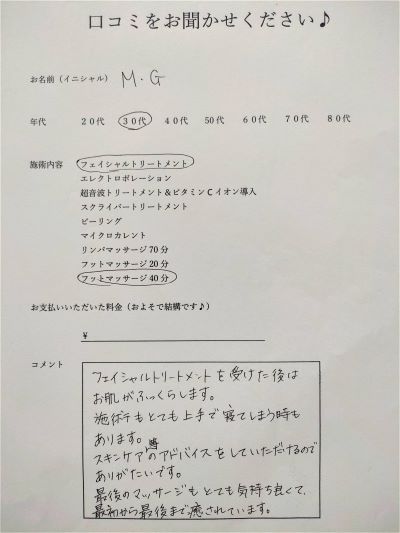 口コミをお聞かせください♪
お名前（イニシャル） M.G
年代 20代 30代 40代 50代 60代 70代 80代
施術内容 フェイシャルトリートメント
エレクトロポレーション
超音波トリートメント＆ビタミンCイオン導入
スクライバートリートメント
ピーリング
マイクロカレント
リンパマッサージ70分
フットマッサージ20分
フットマッサージ40分
お支払いいただいた料金（およそで結構です♪）
¥
コメント
フェイシャルトリートメントを受けた後は
お肌がふっくらします。
施術もとても上手で寝てしまう時も
あります。
スキンケア等のアドバイスをしていただけるので
ありがたいです。
最後のマッサージもとても気持ち良くて、
最初から最後まで癒されています。